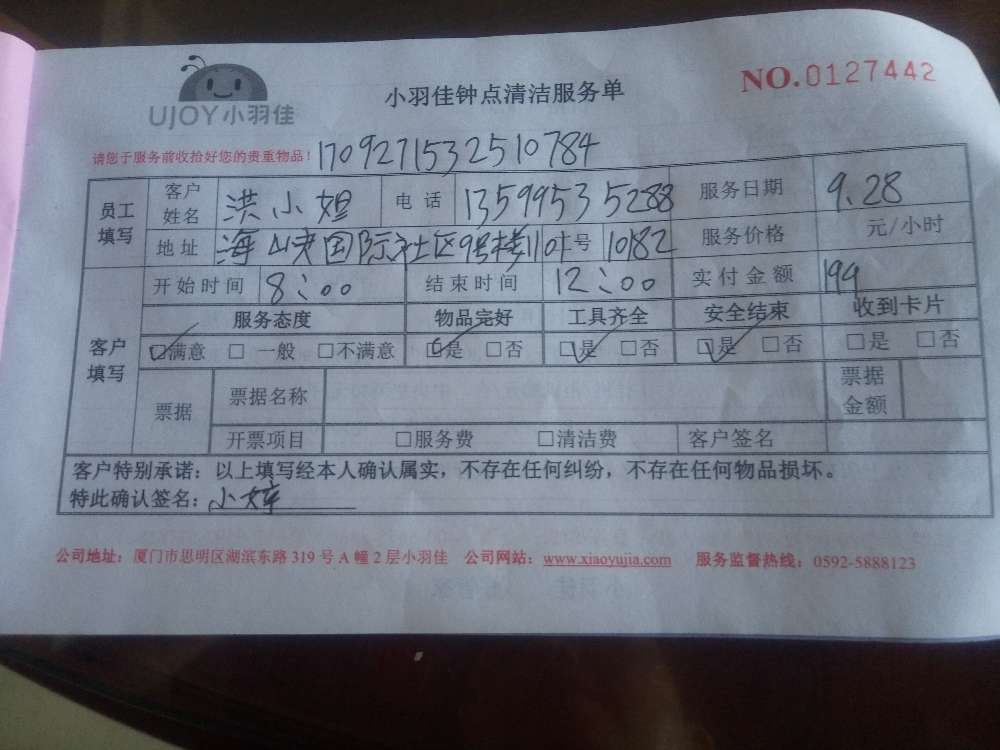 UJOY小羽佳
小羽佳钟点清洁服务单
NO.0127442
请您于服务前收拾好您的贵重物品！17092715325 10784
员工填写 客户姓名 洪小姐 电话 13599535288 服务日期 9.28
地址 海峡国际社区9号楼1101 卡号 10182 服务价格 元/小时
客户填写 开始时间 8:00 结束时间 12:00 实付金额 194
服务态度 物品完好 工具齐全 安全结束 收到卡片
☑满意 □一般 □不满意 ☑是 □否 ☑是 □否 ☑是 □否 □是 □否
票据 票据名称 票据金额
开票项目 □服务费 □清洁费 客户签名
客户特别承诺：以上填写经本人确认属实，不存在任何纠纷，不存在任何物品损坏。
特此确认签名：小婷
公司地址：厦门市思明区湖滨东路319号A幢2层小羽佳 公司网站：www.xiaoyujia.com 服务监督热线：0592-5888123